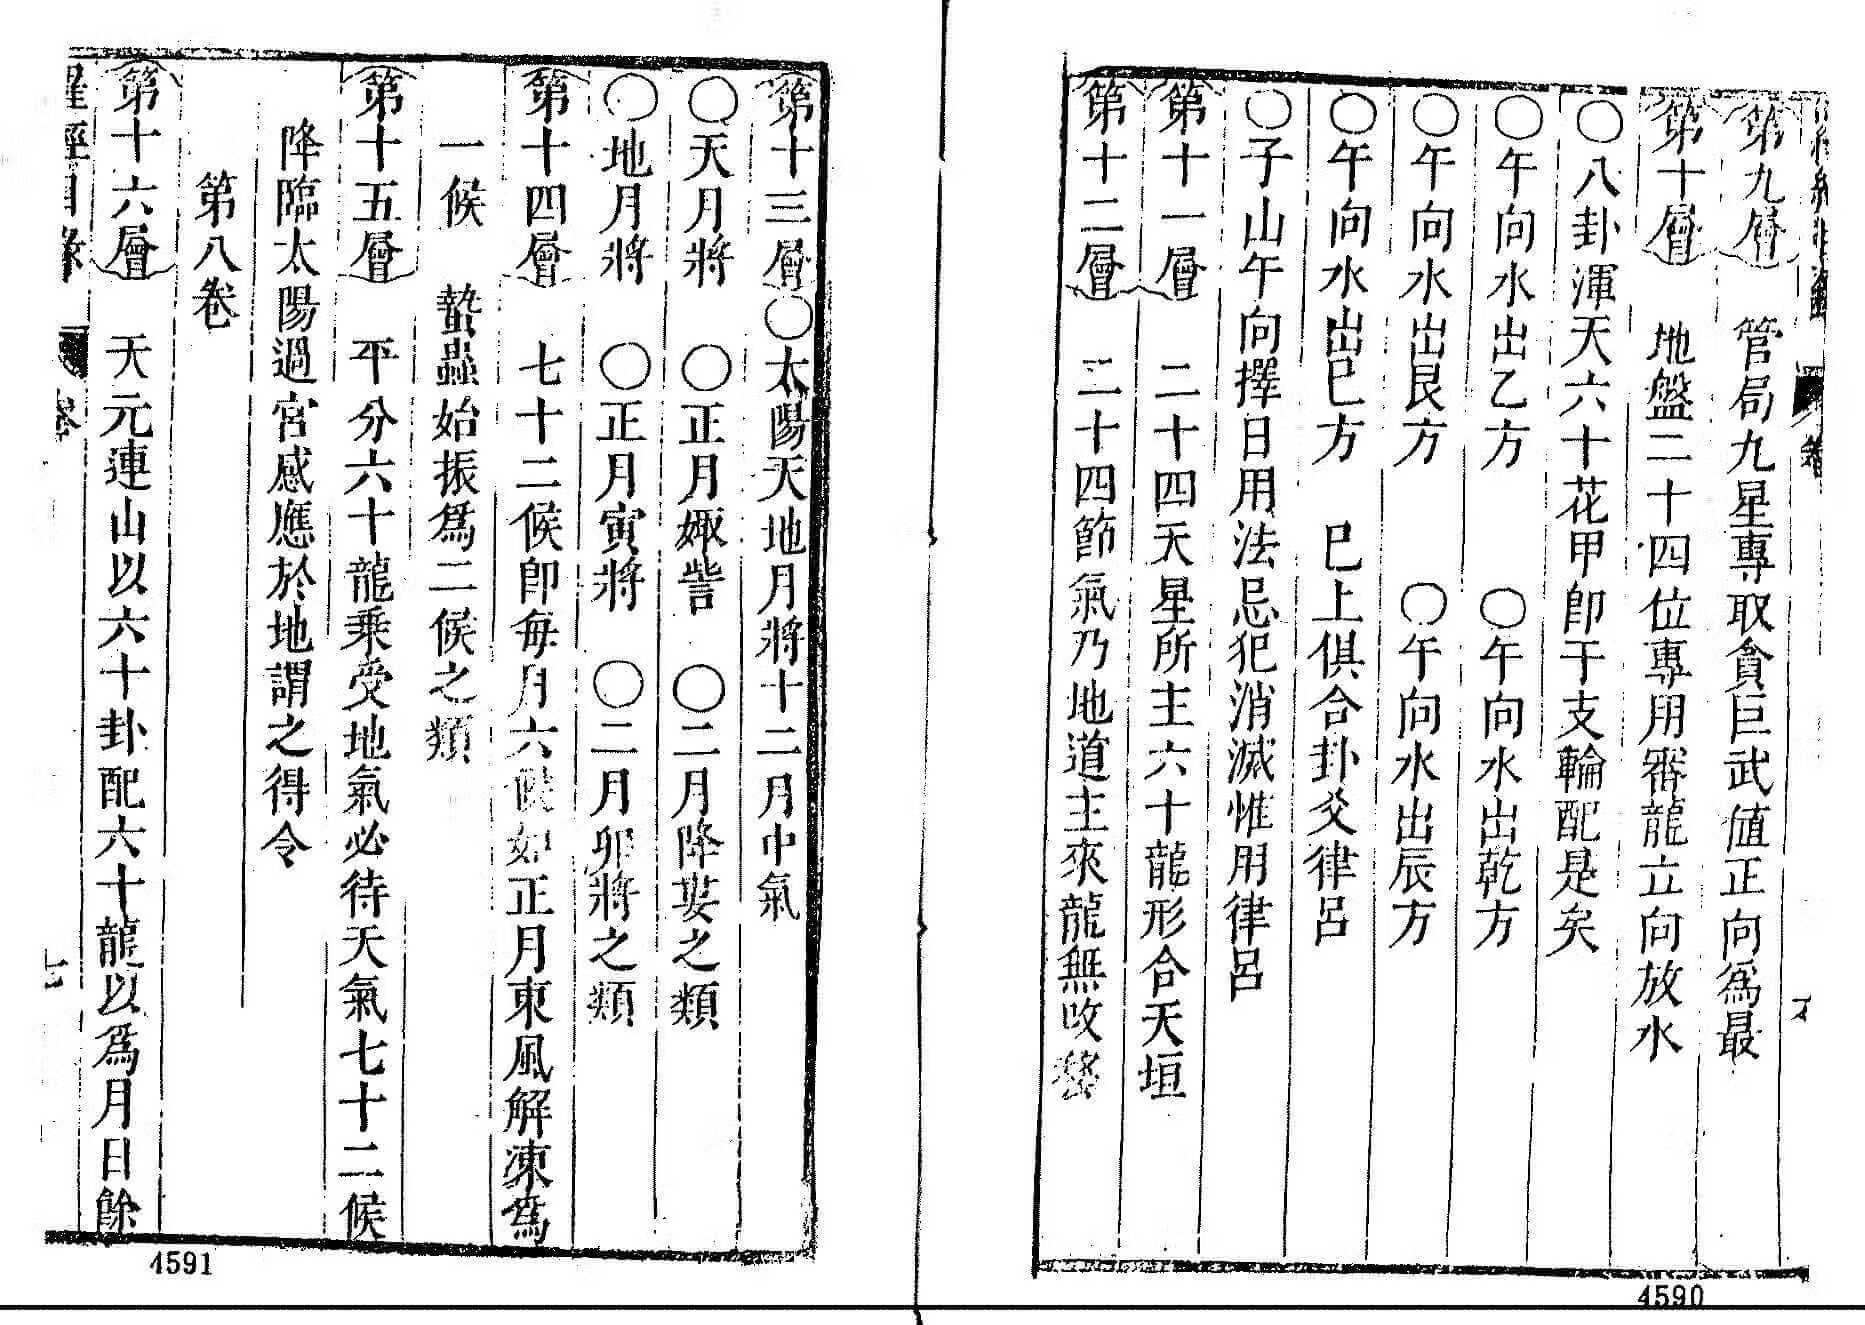 第九層　管局九星專取貪巨武值正向爲最
第十層　地盤二十四位專用審龍立向放水
〇八卦渾天六十花甲卽干支輪配是矣
〇午向水出乙方　〇午向水出乾方
〇午向水出艮方　〇午向水出辰方
〇午向水出巳方　巳上俱合卦爻律呂
〇子山午向擇日用法忌犯消滅惟用律呂
第十一層　二十四天星所主六十龍形合天垣
第十二層　二十四節氣乃地道主來龍無攺
4590
第十三層〇太陽天地月將十二月中氣
〇天月將　〇正月娵訾　〇二月降婁之類
〇地月將　〇正月寅將　〇二月卯將之類
第十四層　七十二候卽每月六候如正月東風解凍爲
一候　蟄蟲始振爲二候之類
第十五層　平分六十龍乘受地氣必待天氣七十二候
降臨太陽過宮感應於地謂之得令
第八卷
第十六層　天元連山以六十卦配六十龍以爲月日餘
羅經目錄
七
4591